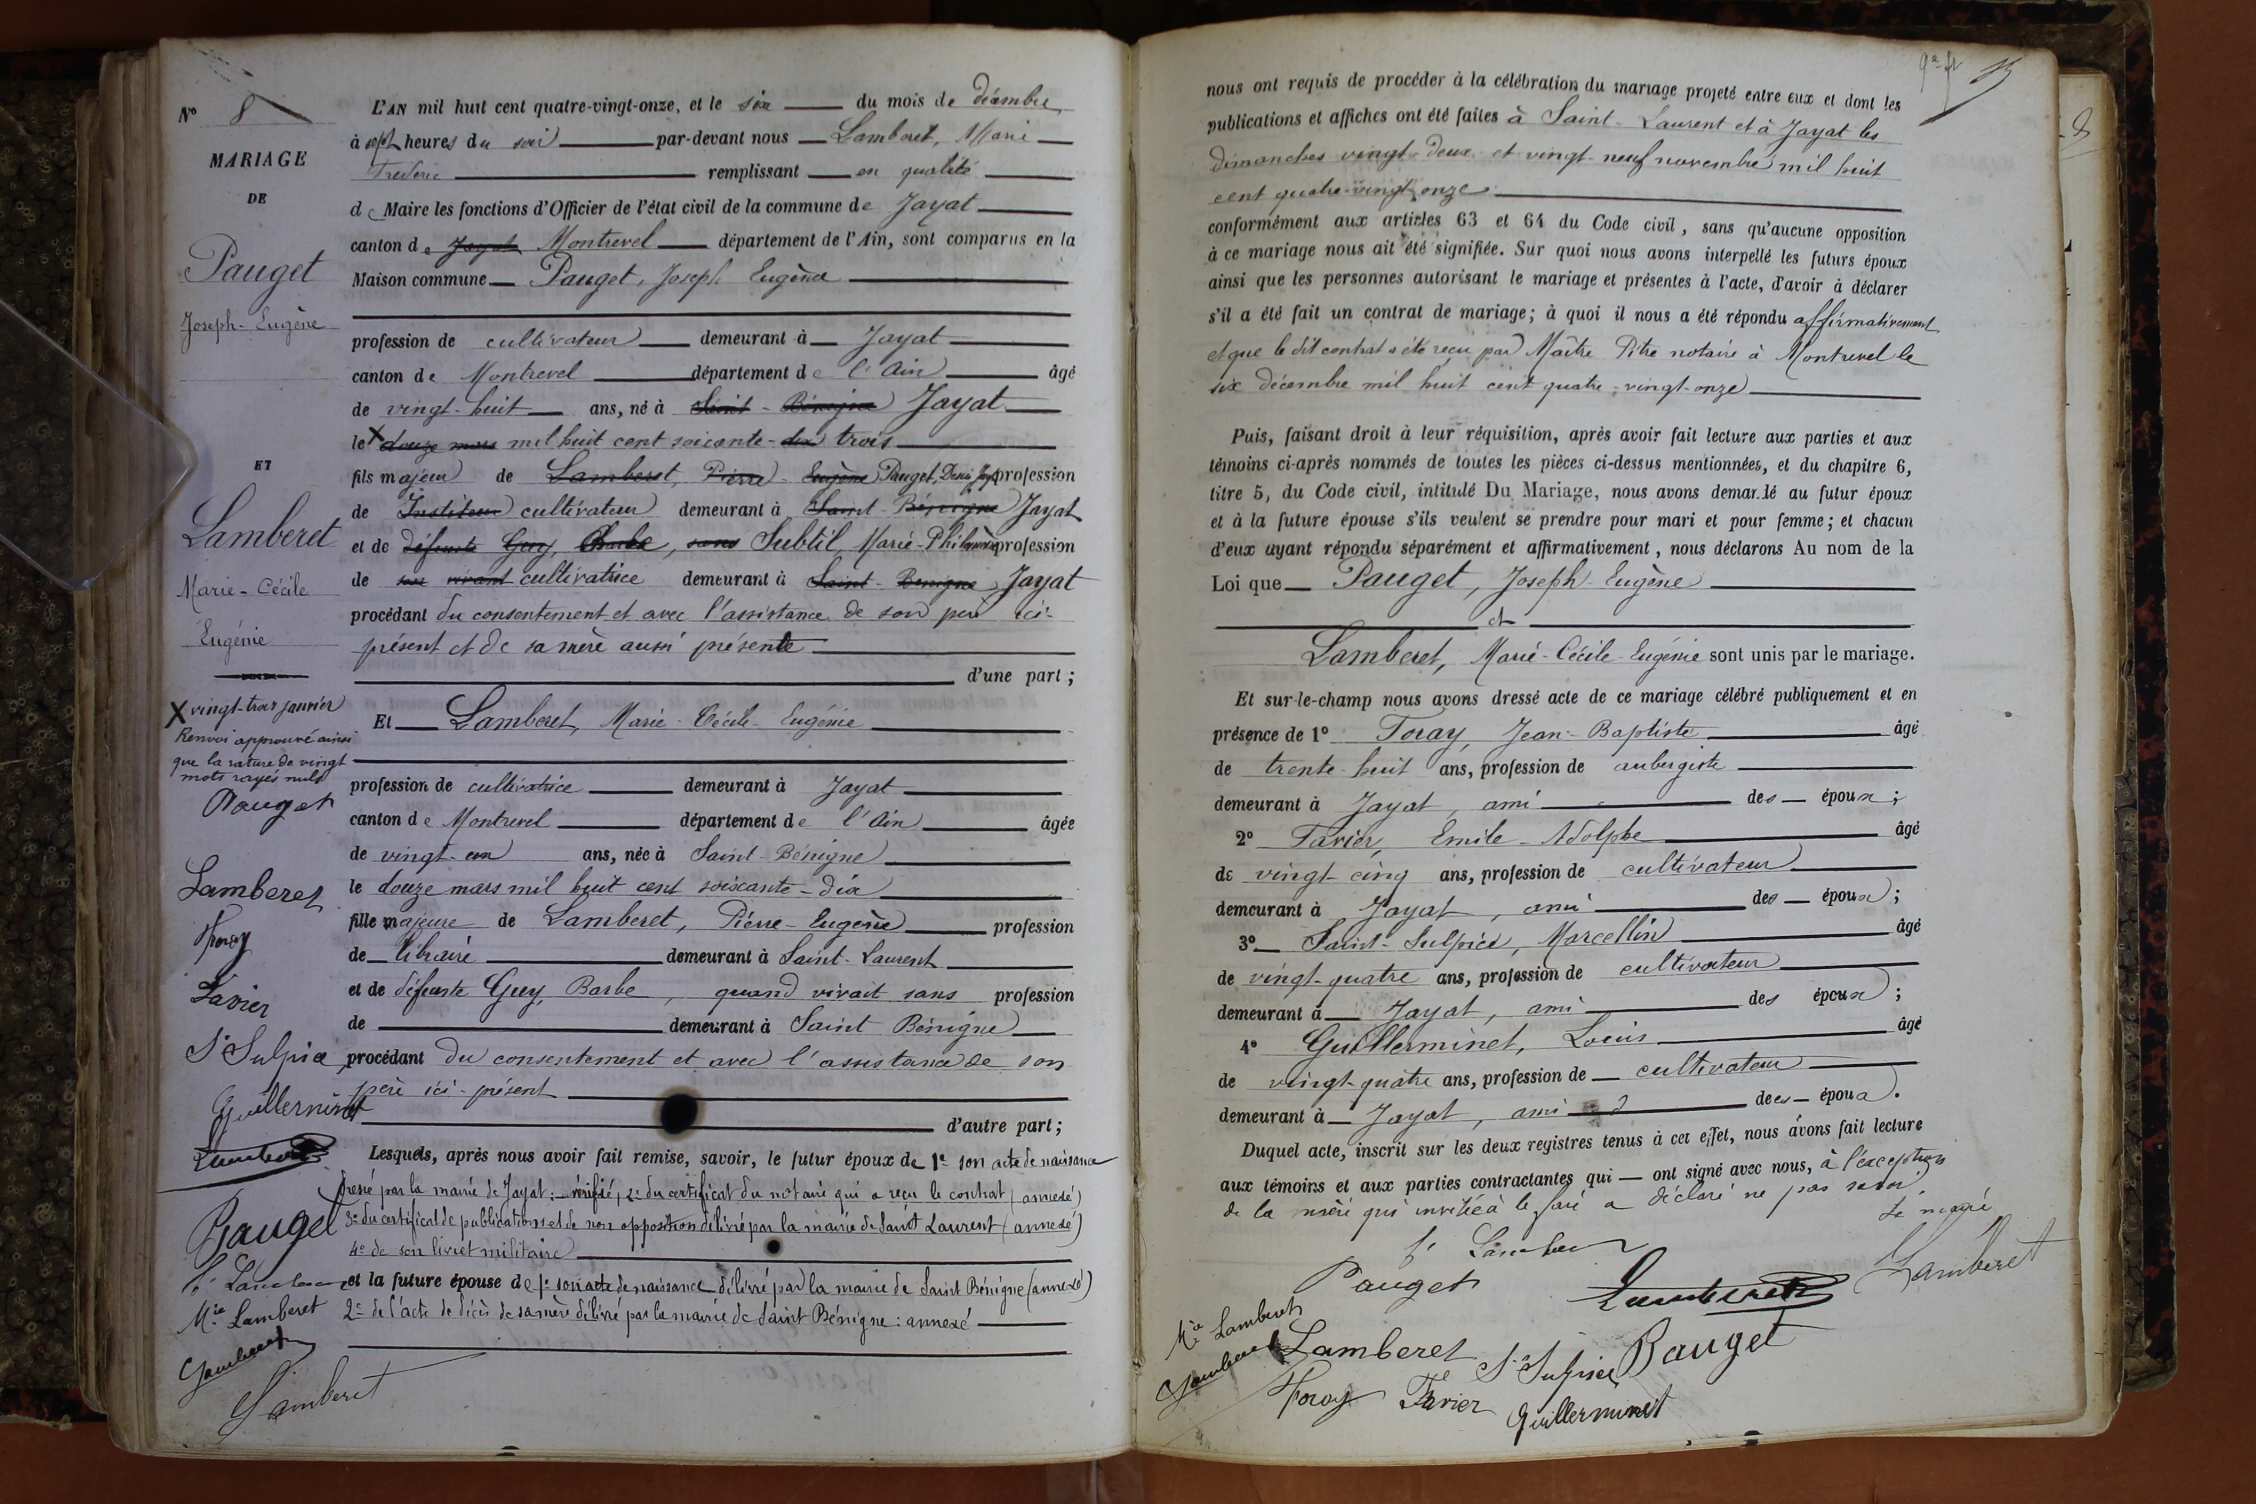 Nº 8
MARIAGE
DE
Pauget
Joseph-Eugène
ET
Lamberet
Marie-Cécile
Eugénie
X vingt-trois janvier
Renvoi approuvé ainsi
que la rature de vingt
mots rayés nuls
Pauget
Lamberet
Foray
Favier
St Sulpice
Guillerminet
Lamberet
Pauget
Mie Lamberet
Lamberet
Lamberet
L'AN mil huit cent quatre-vingt-onze, et le six du mois de décembre
à sept heures du soir par-devant nous Lamberet, Marie
Frédéric remplissant en qualité
de Maire les fonctions d'Officier de l'état civil de la commune de Jayat
canton de Jayat Montrevel département de l'Ain, sont comparus en la
Maison commune Pauget, Joseph Eugène
profession de cultivateur demeurant à Jayat
canton de Montrevel département de l'Ain âgé
de vingt-huit ans, né à Saint-Bénigne Jayat
le X douze mars mil huit cent soixante-dix trois
fils majeur de Lamberet, Pierre-Eugène Pauget, Denis profession
de Instituteur cultivateur demeurant à Saint-Bénigne Jayat
et de défunte Guy, Barbe, sans Subtil, Marie-Philomène profession
de son vivant cultivatrice demeurant à Saint-Bénigne Jayat
procédant du consentement et avec l'assistance de son père ici-
présent et de sa mère aussi présente
d'une part ;
Et Lamberet, Marie-Cécile-Eugénie
profession de cultivatrice demeurant à Jayat
canton de Montrevel département de l'Ain âgée
de vingt-un ans, née à Saint-Bénigne
le douze mars mil huit cent soixante-dix
fille majeure de Lamberet, Pierre-Eugène profession
de libraire demeurant à Saint-Laurent
et de défunte Guy, Barbe, quand vivait sans profession
de demeurant à Saint Bénigne
procédant du consentement et avec l'assistance de son
père ici-présent
d'autre part ;
Lesquels, après nous avoir fait remise, savoir, le futur époux de 1º son acte de naissance
dressé par la mairie de Jayat ; vérifié, 2º du certificat du notaire qui a reçu le contrat (annexé)
3º du certificat de publications et de non opposition délivré par la mairie de Saint Laurent (annexé)
4º de son livret militaire
et la future épouse de 1º son acte de naissance délivré par la mairie de Saint Bénigne (annexé)
2º de l'acte de décès de sa mère délivré par la mairie de Saint Bénigne : annexé
nous ont requis de procéder à la célébration du mariage projeté entre eux et dont les
publications et affiches ont été faites à Saint-Laurent et à Jayat les
dimanches vingt-deux et vingt-neuf novembre mil huit
cent quatre-vingt-onze
conformément aux articles 63 et 64 du Code civil, sans qu'aucune opposition
à ce mariage nous ait été signifiée. Sur quoi nous avons interpellé les futurs époux
ainsi que les personnes autorisant le mariage et présentes à l'acte, d'avoir à déclarer
s'il a été fait un contrat de mariage ; à quoi il nous a été répondu affirmativement
et que le dit contrat a été reçu par Maître Pitre notaire à Montrevel le
six décembre mil huit cent quatre-vingt-onze
Puis, faisant droit à leur réquisition, après avoir fait lecture aux parties et aux
témoins ci-après nommés de toutes les pièces ci-dessus mentionnées, et du chapitre 6,
titre 5, du Code civil, intitulé Du Mariage, nous avons demandé au futur époux
et à la future épouse s'ils veulent se prendre pour mari et pour femme ; et chacun
d'eux ayant répondu séparément et affirmativement, nous déclarons Au nom de la
Loi que Pauget, Joseph Eugène
et
Lamberet, Marie-Cécile-Eugénie sont unis par le mariage.
Et sur-le-champ nous avons dressé acte de ce mariage célébré publiquement et en
présence de 1º Foray, Jean-Baptiste âgé
de trente-huit ans, profession de aubergiste
demeurant à Jayat, ami des époux ;
2º Favier, Emile-Adolphe âgé
de vingt cinq ans, profession de cultivateur
demeurant à Jayat, ami des époux ;
3º Saint-Sulpice, Marcellin âgé
de vingt-quatre ans, profession de cultivateur
demeurant à Jayat, ami des époux ;
4º Guillerminet, Louis âgé
de vingt-quatre ans, profession de cultivateur
demeurant à Jayat, ami des époux.
Duquel acte, inscrit sur les deux registres tenus à cet effet, nous avons fait lecture
aux témoins et aux parties contractantes qui ont signé avec nous, à l'exception
de la mère qui invitée à le faire a déclaré ne pas savoir
Le maire
Pauget
Lamberet
Lamberet
Mie Lamberet
Lamberet
Lamberet
St Sulpice
Pauget
Foray
Favier
Guillerminet